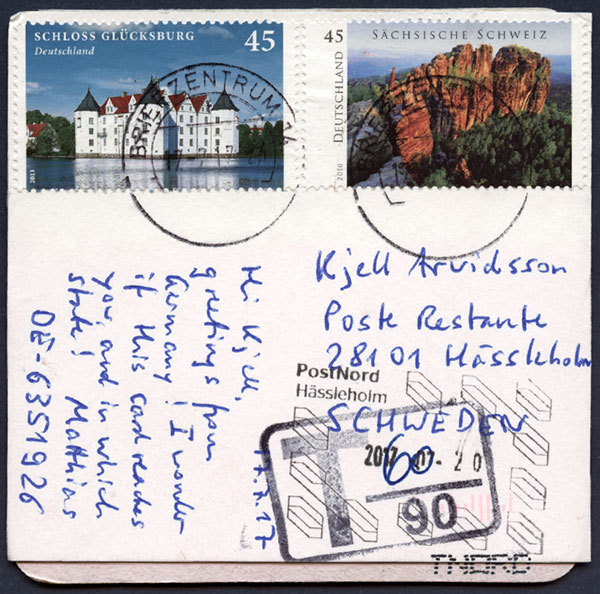 SCHLOSS GLÜCKSBURG 45
Deutschland
2013
45 SÄCHSISCHE SCHWEIZ
DEUTSCHLAND
2016
BRIEFZENTRUM
Kjell Arvidsson
Poste Restante
28101 Hässleholm
SCHWEDEN
PostNord
Hässleholm
2017 -07- 20
T 60
90
TNORD
17.7.17
Hi Kjell,
greetings from
Germany! I wonder
if this card reaches
you, and in which
state! Matthias
DE-6351926